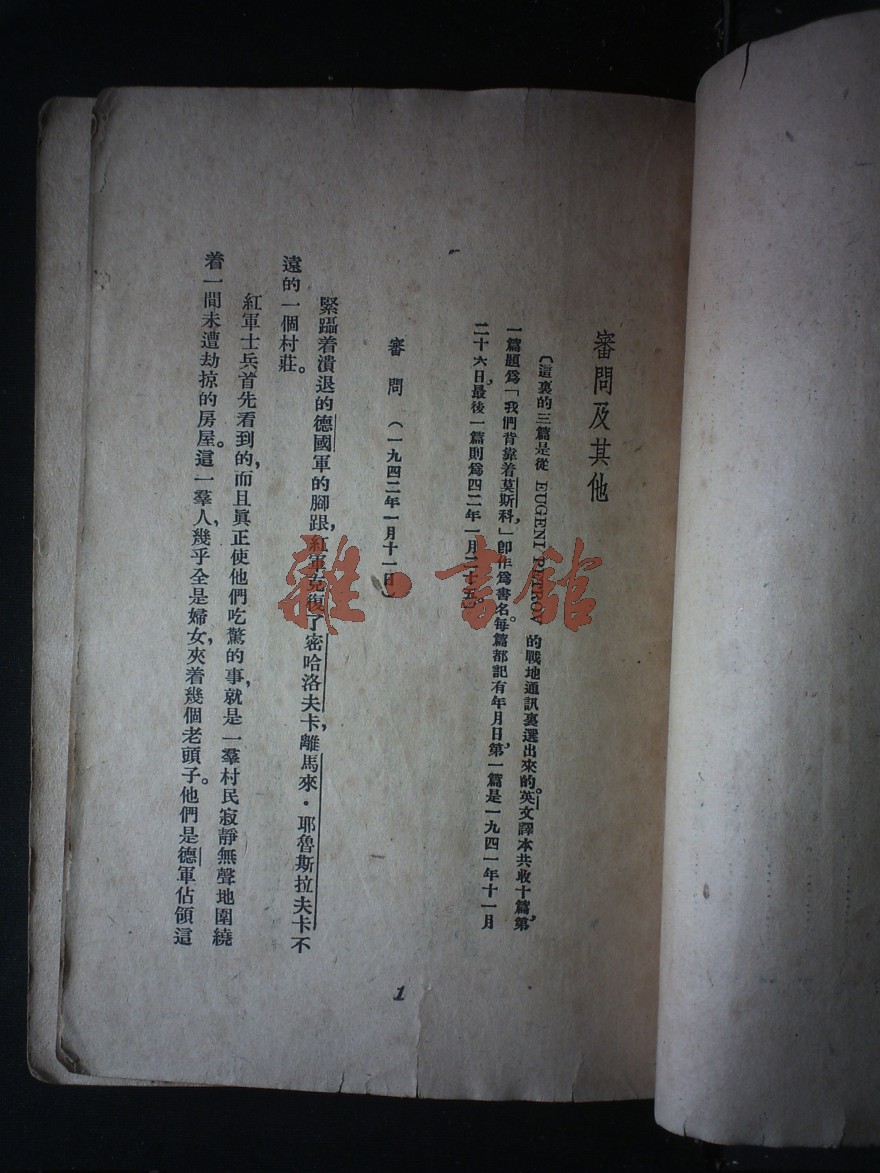 審問及其他
〔這裏的三篇是從 EUGENI PETROV 的戰地通訊裏選出來的。英文譯本共收十篇，第
一篇題爲「我們背靠着莫斯科，」卽作爲書名。每篇都記有年月日，第一篇是一九四一年十一月
二十六日，最後一篇則爲四二年一月二十五〕
審問（一九四二年一月十一日）
緊躡着潰退的德國軍的腳跟，紅軍克復了密哈洛夫卡，離馬來·耶魯斯拉夫卡不
遠的一個村莊。
紅軍士兵首先看到的，而且眞正使他們吃驚的事，就是一羣村民寂靜無聲地圍繞
着一間未遭劫掠的房屋。這一羣人，幾乎全是婦女，夾着幾個老頭子。他們是德軍佔領這
1
雜·書館